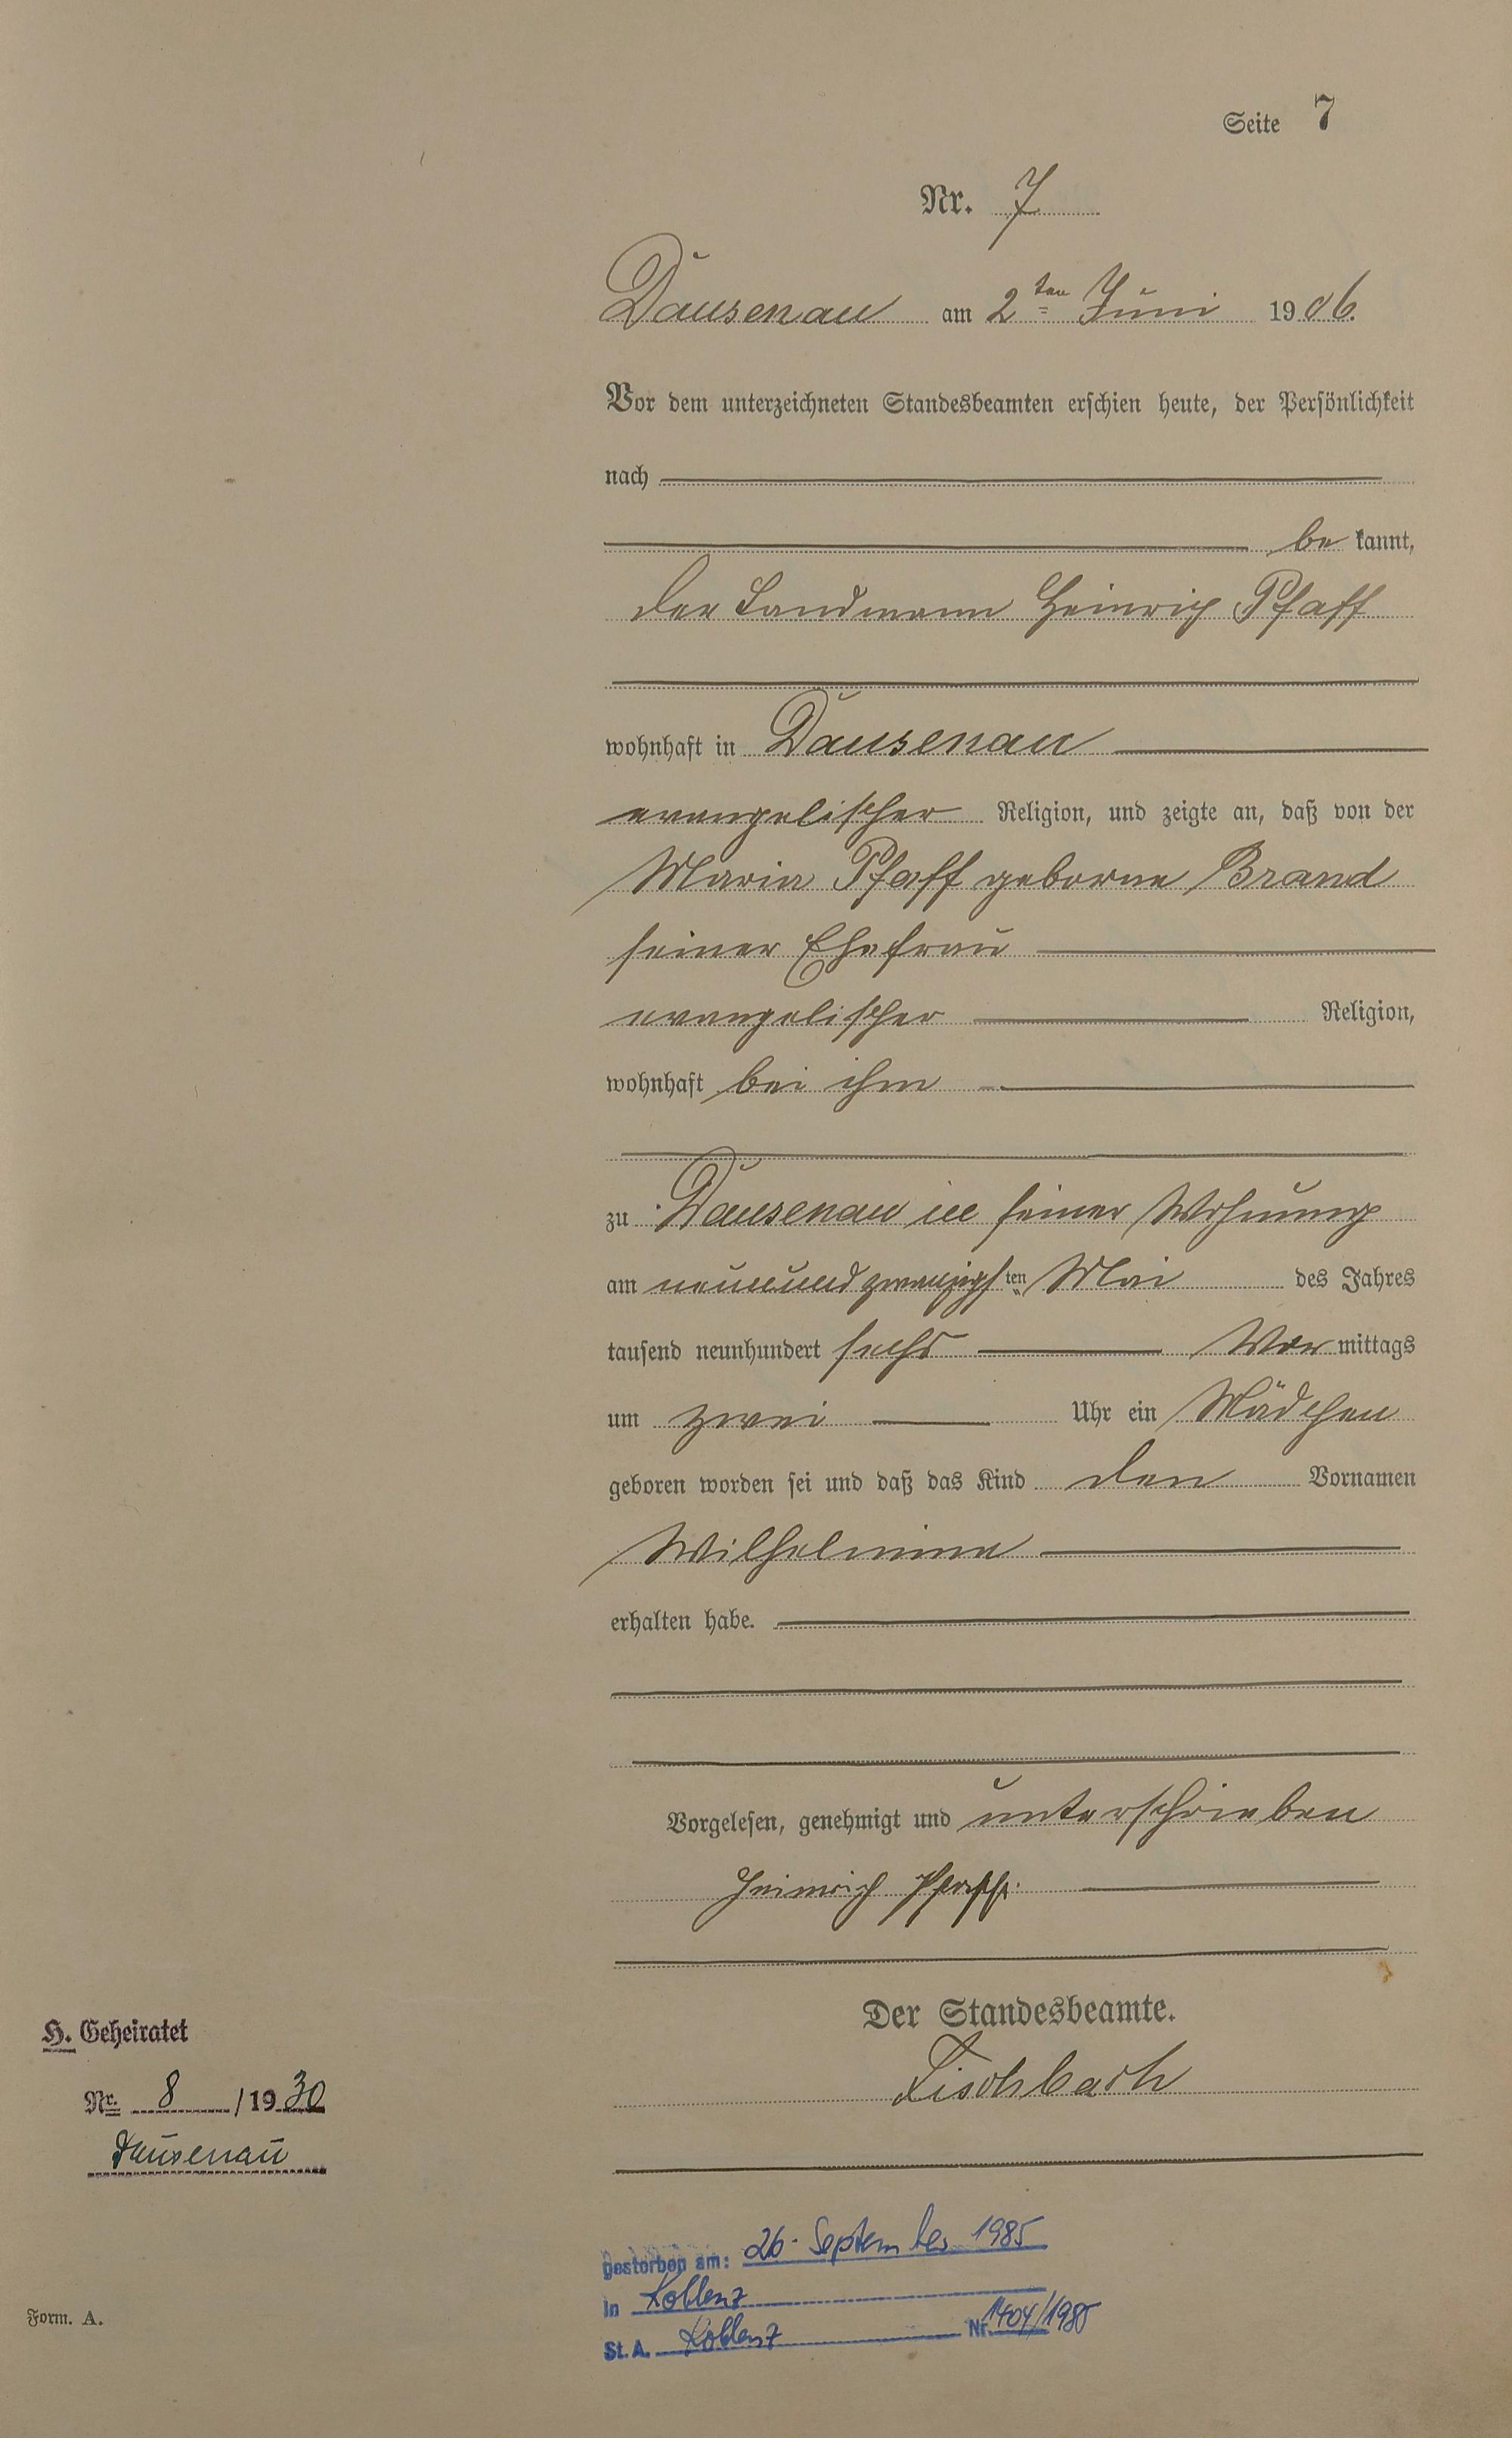 Seite 7
Nr. 7
Dausenau am 2ten Juni 1906.
Vor dem unterzeichneten Standesbeamten erschien heute, der Persönlichkeit
nach
be kannt,
der Landmann Heinrich Pfaff
wohnhaft in Dausenau
evangelischer Religion, und zeigte an, daß von der
Maria Pfaff geborne Brand
seiner Ehefrau
evangelischer Religion,
wohnhaft bei ihm
zu Dausenau in seiner Wohnung
am neunundzwanzigsten Mai des Jahres
tausend neunhundert sechs Vor mittags
um zwei Uhr ein Mädchen
geboren worden sei und daß das Kind den Vornamen
Wilhelmine
erhalten habe.
Vorgelesen, genehmigt und unterschrieben
Heinrich Pfaff.
Der Standesbeamte.
Fischbach
H. Geheiratet
Nr. 8 / 1930
Dausenau
gestorben am: 26. September 1985
in Koblenz
St. A. Koblenz Nr. 1404/1985
Form. A.